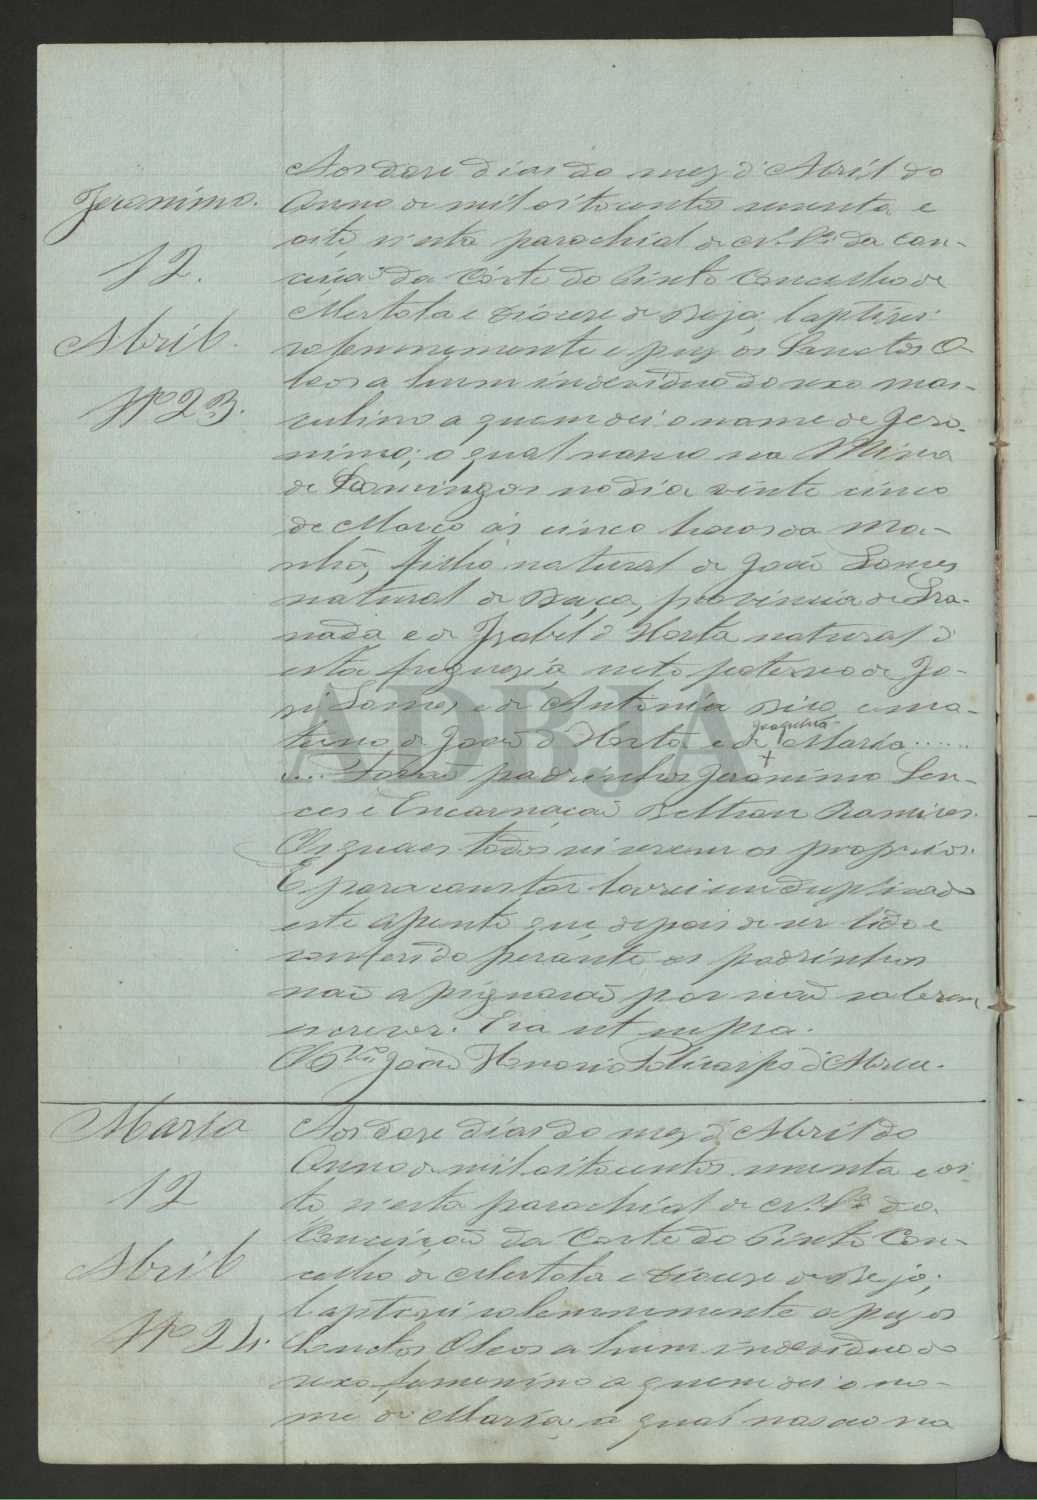 Jeronimo.
12.
Abril.
Nº 23.
Aos dose dias do mez d'Abril do
Anno de mil oitocentos secenta e
oito, n'esta parochial de N. Sª da Con-
ceiçaõ da Côrte do Pinto Concelho de
Mertola e Diocese de Beja, baptisei
solemnemente e puz os Sanctos O-
leos a hum individuo do sexo mas-
culino a quem dei o nome de Jero-
nimo; o qual nasceo na Mina
de Domingos no dia vinte cinco
de Março ás cinco horas da ma-
nhã, filho natural de Joaõ Lomes
natural de Baça, provincia de Gra-
nada e de Izabel d'Horta natural d'
esta freguezia neto paterno de Jo-
sé Lomes e de Antonia Dica, e ma-
terno de Joaõ d'Horta e de Joaquina Maria ......
.... Foraõ padrinhos Jeronimo
e Encarnaçaõ Beltran Ramires.
Os quaes todos sei serem os proprios.
E para constar lavrei em duplicado
este assento que depois de ser lido e
conferido perante os padrinhos
naõ assignaraõ por naõ saberem
escrever. Era ut supra.
O Joaõ Honorio Policarpo d'Abreu.
Maria
12
Abril
Nº 24.
Aos dose dias do mez d'Abril do
Anno de mil oitocentos secenta e oi-
to n'esta parochial de N. Sª da
Conceiçaõ da Corte do Pinto Con-
celho de Mertola e Diocese de Beja;
baptisei solemnemente e puz os
Sanctos Oleos a hum individuo do
sexo femenino a quem dei o no-
me de Maria, a qual nasceo na
ADBJA